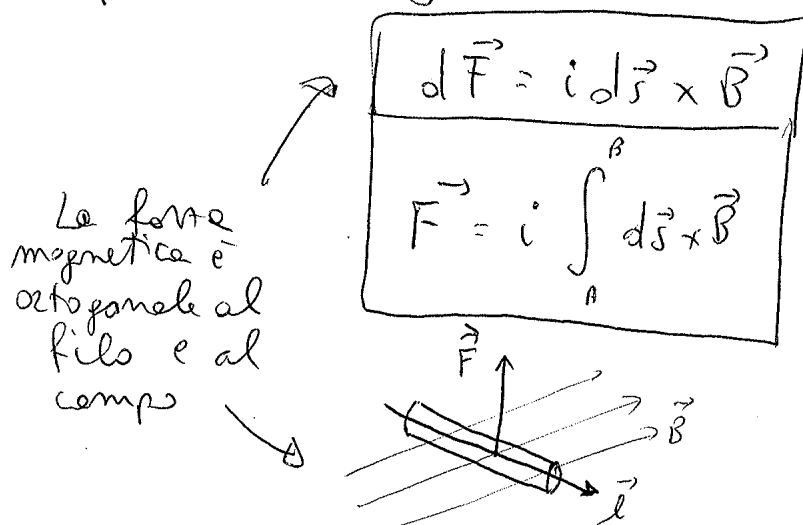 dF⃗ = i ds⃗ × B⃗
F⃗ = i ∫_A^B ds⃗ × B⃗
La forza
magnetica è
ortogonale al
filo e al
campo
F⃗
B⃗
l⃗